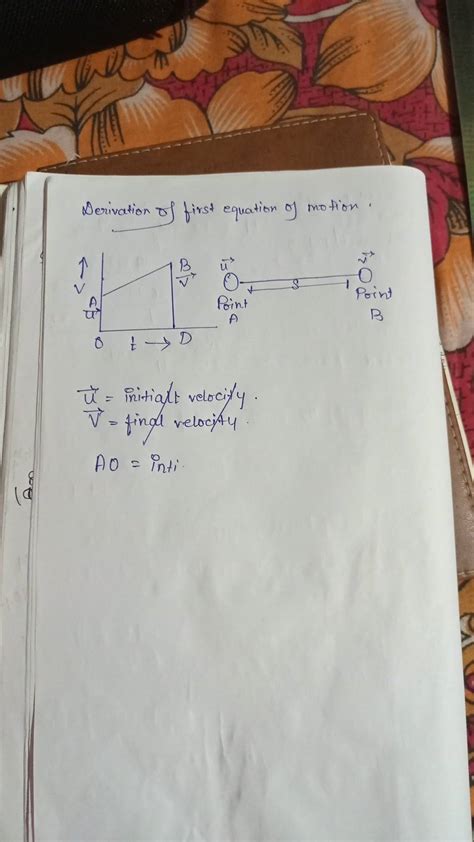 Derivation of first equation of motion.
↑
V
A
u⃗
B
v⃗
O
t →
D
u⃗
v⃗
S
Point
A
Point
B
u⃗ = initialt velocity.
V⃗ = final velocity.
AO = inti.